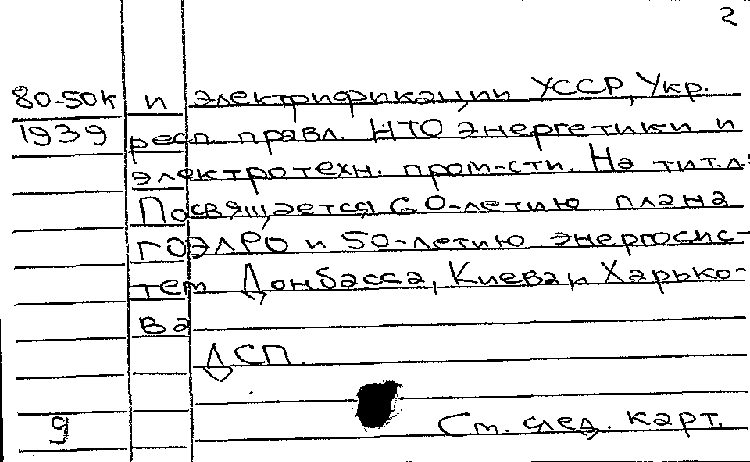 2
80-50к и электрификации УССР, Укр.
1939 респ. правл. НТО энергетики и
электротехн. пром-сти. На тит.л:
Посвящается 60-летию плана
ГОЭЛРО и 50-летию энергосис-
тем Донбасса, Киева и Харько-
ва
ДСП.
См. след. карт.